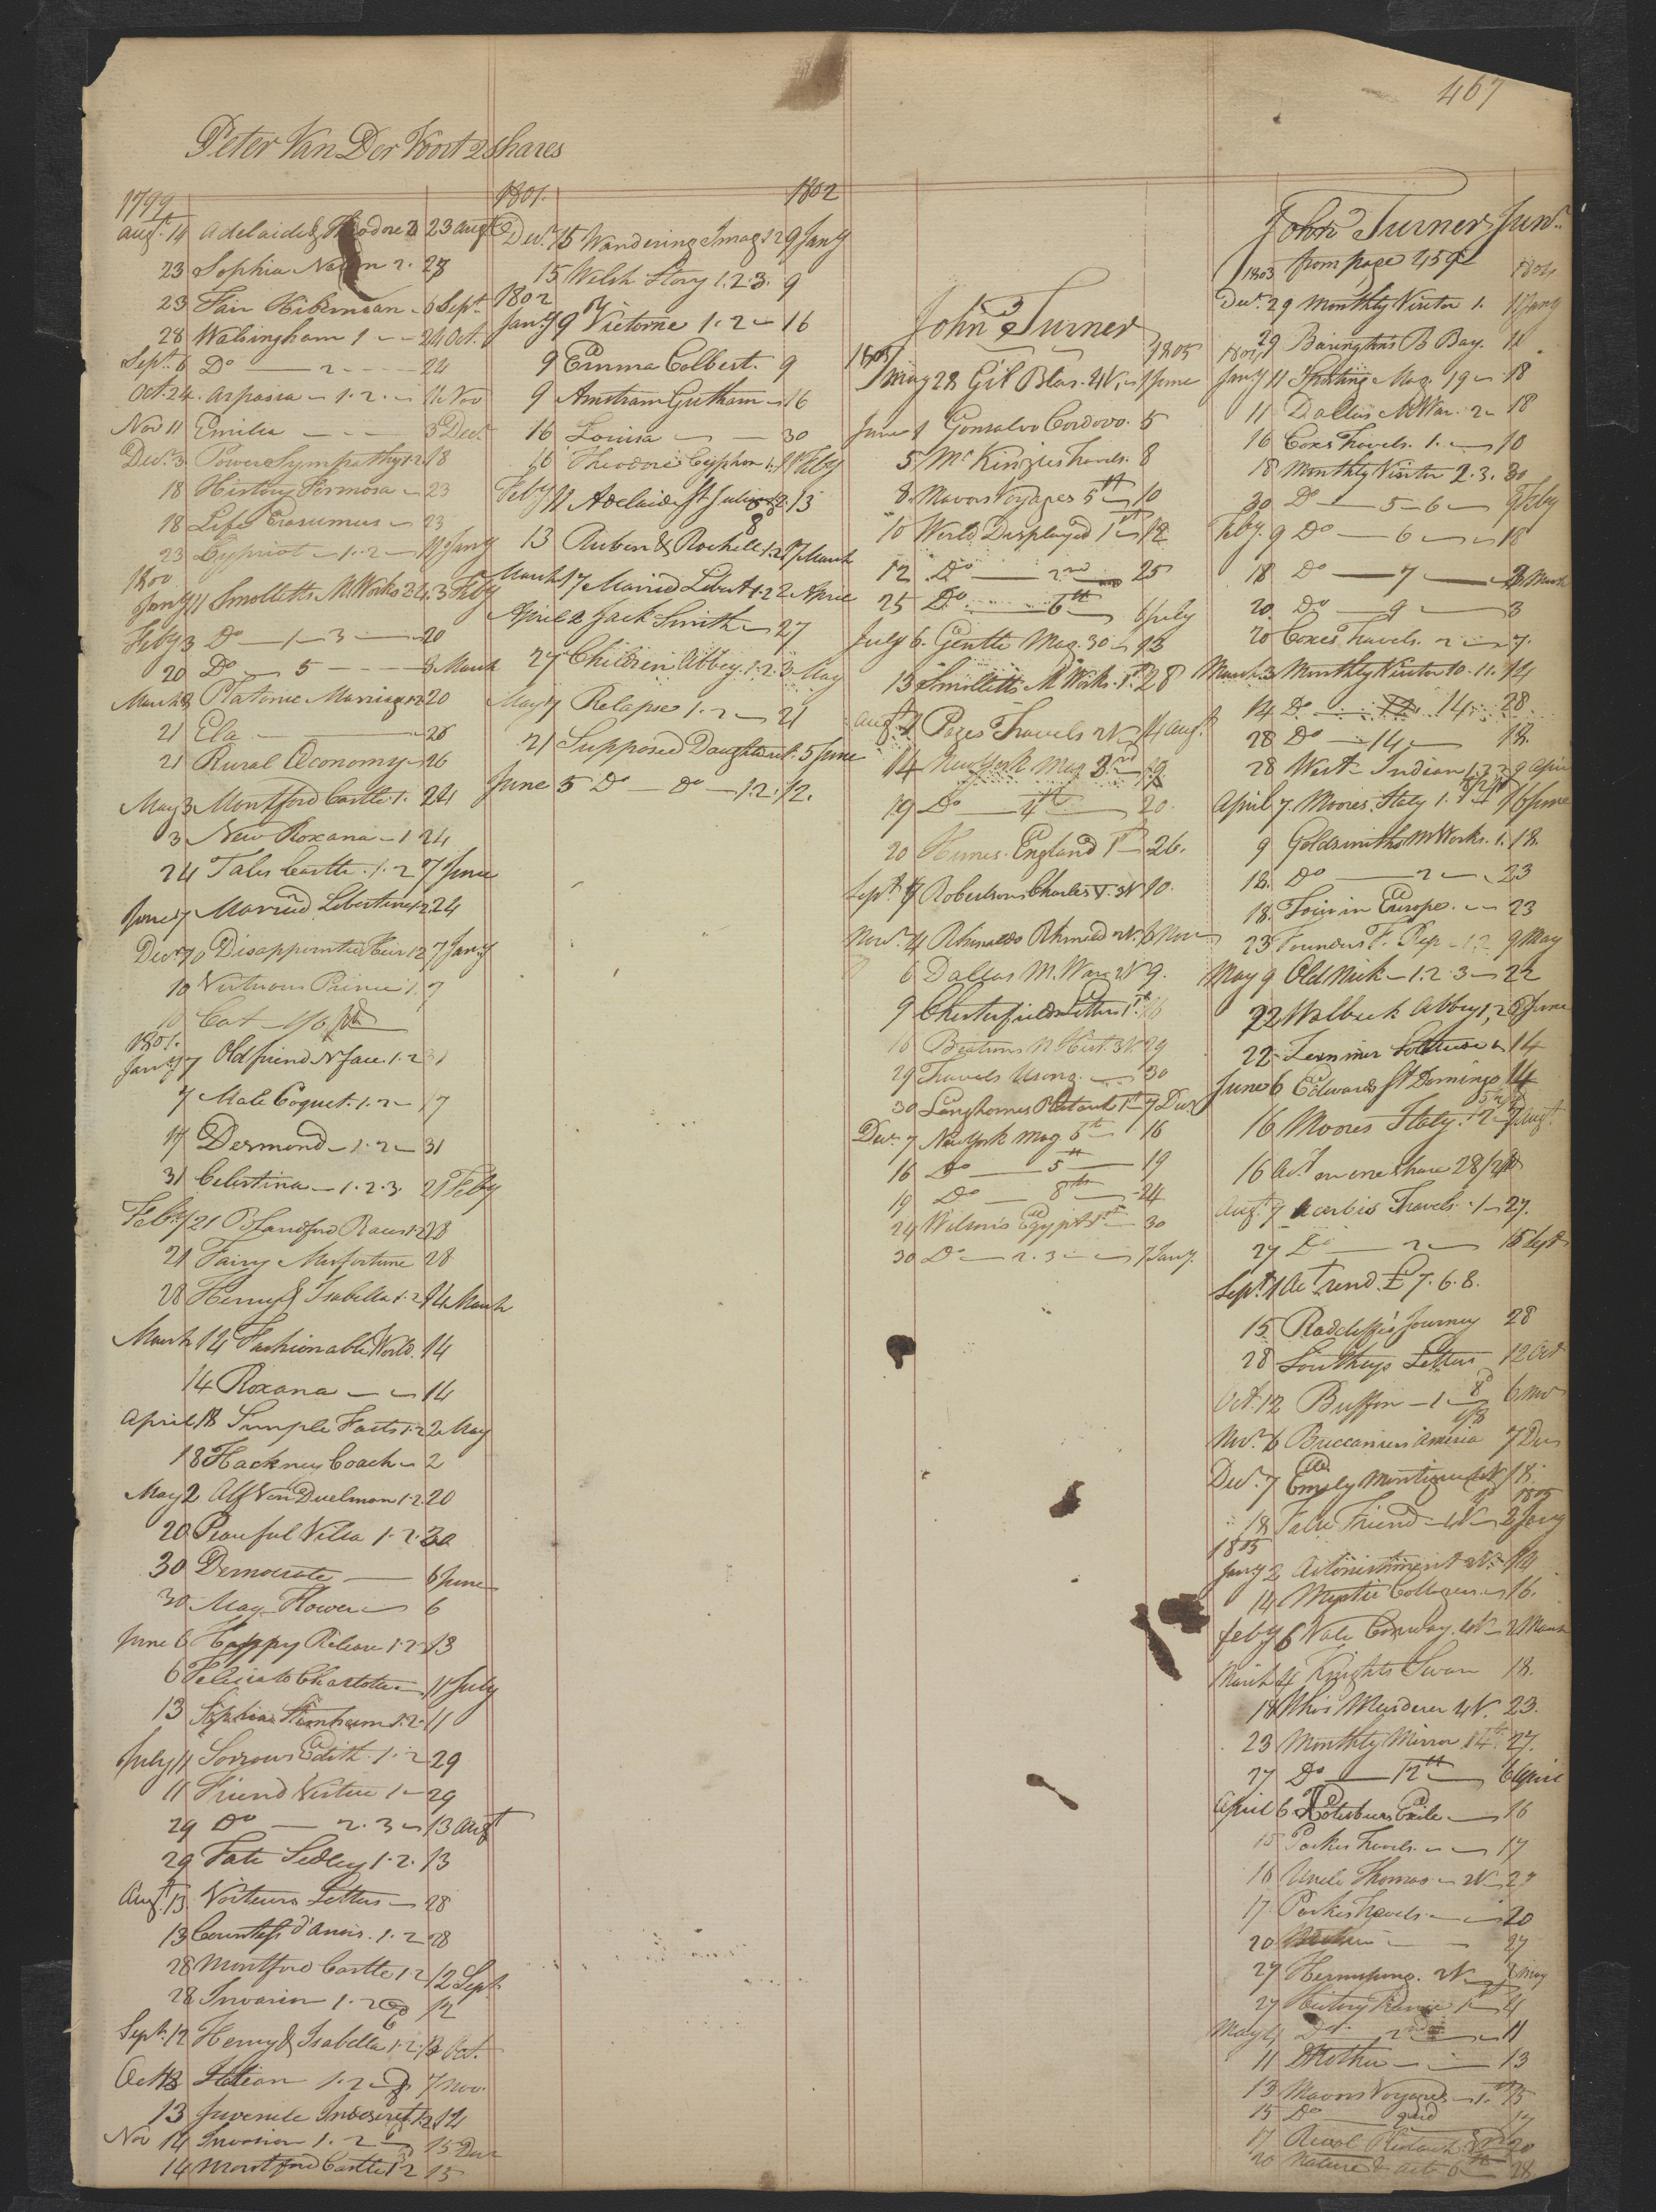 467
Peter Van Der Voort 2 Shares
1799
Augt. 14 Adelaide & Theodore 3 23 Augt
23 Sophia 2. 28
23 Fair Hibernian 6 Sept.
28 Walsingham 1 24 Oct.
Sept. 6 Do 2 24
Oct. 24. Aspasia 1. 2. 11 Nov
Nov 11 Emilia 3 Decr
Decr. 3. Power Sympathy 1.2. 18
18 History Formosa 23
18 Life Erasumus 23
23 Cypriot 1. 2 11 Jany
1800
Jany 11 Smolletts M Works 2 4. 3 Feby
Feby 3 Do 1 3 20
20 Do 5 3 March
March 3 Platonic Marriage 1 2 20
21 Ela 26
21 Rural Oconomy 26
May 3 Montford Castle 1. 24
3 New Roxana 1 24
24 Tales Castle 1. 2 7 June
June 7 Married Libertine 1.2 24
Decr 10 Disappointed Heir 1 2 7 Jany
10 Virtuous Prince 1. 7
10 Cat 1/6 pd
1801.
Jany 7 Old friend N face 1. 2 31
7 Male Coquet. 1. 2 17
17 Desmond 1. 2 31
31 Celestina 1. 2. 3. 21 Feby
Feby 21 Blandford Races 1.2 28
21 Fairy Misfortune 28
28 Henry & Isabella 1. 2 14 March
March 14 Fashionable World. 14
14 Roxana 14
April 18 Simple Facts 1.2 2 May
18 Hackney Coach 2
May 2 Alf Von Duelman 1.2. 20
20 Peaceful Villa 1. 2. 30
30 Democrate 6 June
30 May Flower 6
June 6 Happy Release 1. 2 13
6 Felicia to Charlotte 11 July
13 Sophia Sternheim 1. 2. 11
July 11 Sorrows Edith. 1. 2 29
11 Friend Virtue 1 29
29 Do 2. 3 13 Augt
29 Fate Sedley 1. 2. 13
Augt. 13. Voitures Letters 28
13 Countess d'Anois. 1. 2 28
28 Montford Castle 1. 2 12 Sept
28 Invasion 1. 2 12
Sept. 12 Henry & Isabella 1. 2 13 Oct.
Oct 13 Italian 1. 2 7 Nov.
13 Juvenile Indiscret. 1.2 14
Nov 14 Invasion 1. 2 15 Decr
14 Montford Castle 1. 2 15
1801. 1802
Decr. 15 Wandering Imag 1 2 9 Jany
15 Welsh Story 1. 2. 3. 9
1802
Jany 9 Victorine 1. 2 16
9 Emma Colbert. 9
9 16
16 Louisa 30
16 Theodore Cyphon 1. 11 Feby
Feby 11 Adelaide St Julian 1.2. 13
13 Ruben & Rachell 1.2 17 March
March 17 Married Libert. 1.2 2 April
April 2 Jack Smith 27
27 Children Abbey. 1. 2. 3 May
May 7 Relapse 1. 2 21
21 Supposed Daughter 1. 5 June
June 5 Do Do 1. 2. 12.
John Turner
1805 1805
May 28 Gil Blas. 4 V. 1 June
June 1 Gonsalvo Cordovo. 5
5 McKinzies Travels. 8
8. Mavors Voyages 5th 10
10 World Displayed 1st 12
12 Do 2nd 25
25 Do 6th 6 July
July 6. Gentle Mag. 30 13
13 Smolletts M Works. 1st 28
Augt. 1 Pages Travels 2 V 14 Augt.
14 New York Mag 3rd 19
19 Do 4th 20.
20 Humes England 1st 26.
Sept. 4 Robertsons Charles V. 3 V 10.
Novr. 4 Rhinaldo Rhinaldi 2 V. 6 Nov
6 Dallas M. War 2 V 9.
9 Chesterfields Letters 1st 16
16 Beatsons N Hist. 3 V. 29
29 Travels 30
30 Langhornes Plutark 1st 7 Decr
Decr. 7 New York Mag 6th 16
16 Do 5th 19
19 Do 8th 24
24 Wilsons Egypt 1st 30
30 Do 2. 3 7 Jany.
John Turner Junr.
1803 from page 459 1804
Decr. 29 Monthly Visitor 1. 11 Jany
29 Baringtons B Bay. 11
1804
Jany 11 Sporting Mag. 19 18
11 Dallas M War. 2 18
16 Coxs Travels. 1. 18
18 Monthly Visitor 2. 3. 30
30 Do 5 6 9 Feby
Feby. 9 Do 6 18
18 Do 7 3 March
20. Do 9 3
20 Coxes Travels. 2 7.
March 3 Monthly Visitor 10. 11. 14
14 Do 14 28
28 Do 14 18.
28 West Indian 1. 2 9 April
April 7. Moores Italy 1. 16 June
9 Goldsmiths M Works. 1. 18.
18. Do 2 23
18. Tour in Europe. 23
23 Founders F. Rep 1. 2 9 May
May 9 Old Nick 1. 2. 3 22
22 Walbeck Abbey 1, 2 6 June
22 Zimmer Solitude 14
June 6 Edwards St Domingo 14
16 Moores Italy. 1 2 7 Augt.
16 Act. on one Share 28/ pd
Augt. 7 Acerbis Travels. 1 27.
27 Do 2 15 Sept
Sept. 1 Act rend. £7. 6. 8.
15 Radcliffes Journey 28
28 Southeys Letters 12 Oct
Oct. 12 Buffon 1 6 Nov
Novr. 6 Buccaniers America 7 Dec
Decr. 7 Emily Montigue 4 V 18.
18 False Friend 4 V 2 Jany 1805
1805
Jany 2 Astonishment 2 V. 14
14 Mystic Cottagers 16.
Feby 6 Vale Conway. 4 V 2 March
March 4 Knights Swan 18.
18 Whos Murderer 4 V. 23.
23 Monthly Mirror 14th 27.
27 Do 12th 6 April
April 6 Petersburs Exile 16
16 Parkes Travels. 17
16 Uncle Thomas 2 V 27
17. Parkes Travels. 20
20 27
27 Hermsprong. 2 V 2 May
27 History France 1st 4
May 4 Do 2nd 11
11 Mother 13
13 Mavors Voyages 1st 15
15 Do 2nd 17
17 Plutarch 20
20 Nature & Art 28